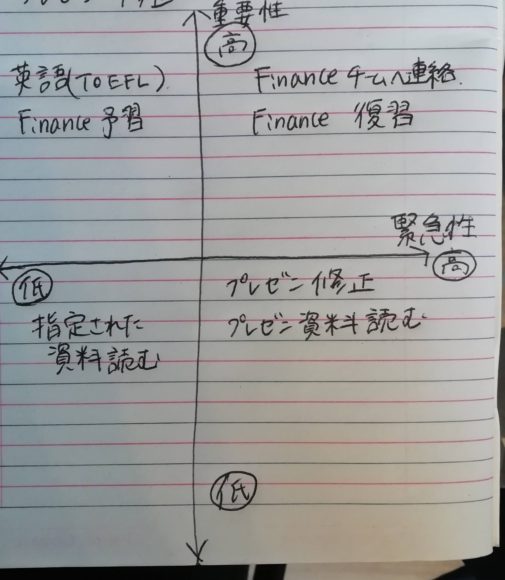 重要性
高
英語(TOEFL)
Finance 予習
Finance チームへ連絡.
Finance 復習
緊急性
高
低
プレゼン修正
プレゼン資料読む
指定された
資料読む
低